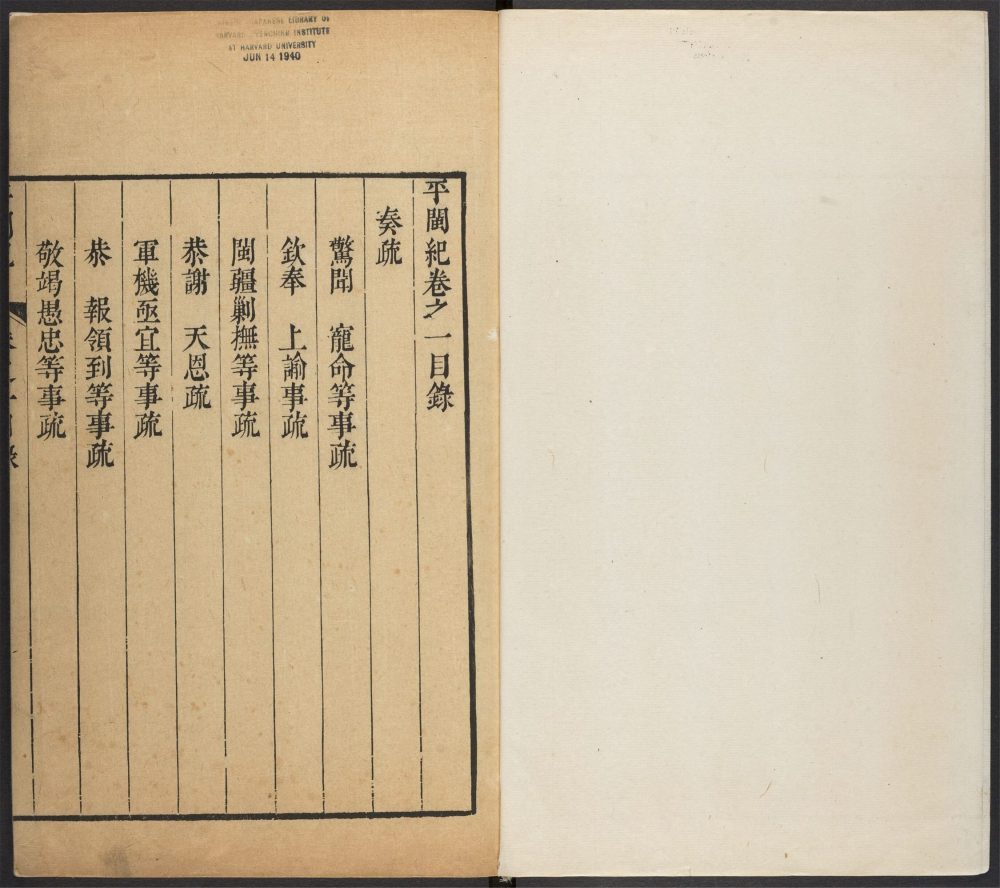 JAPANESE LIBRARY OF
HARVARD YENCHING INSTITUTE
AT HARVARD UNIVERSITY
JUN 14 1940
平閩紀卷之一目錄
奏疏
驚聞　寵命等事疏
欽奉　上諭事疏
閩疆剿撫等事疏
恭謝　天恩疏
軍機亟宜等事疏
恭　報領到等事疏
敬竭愚忠等事疏